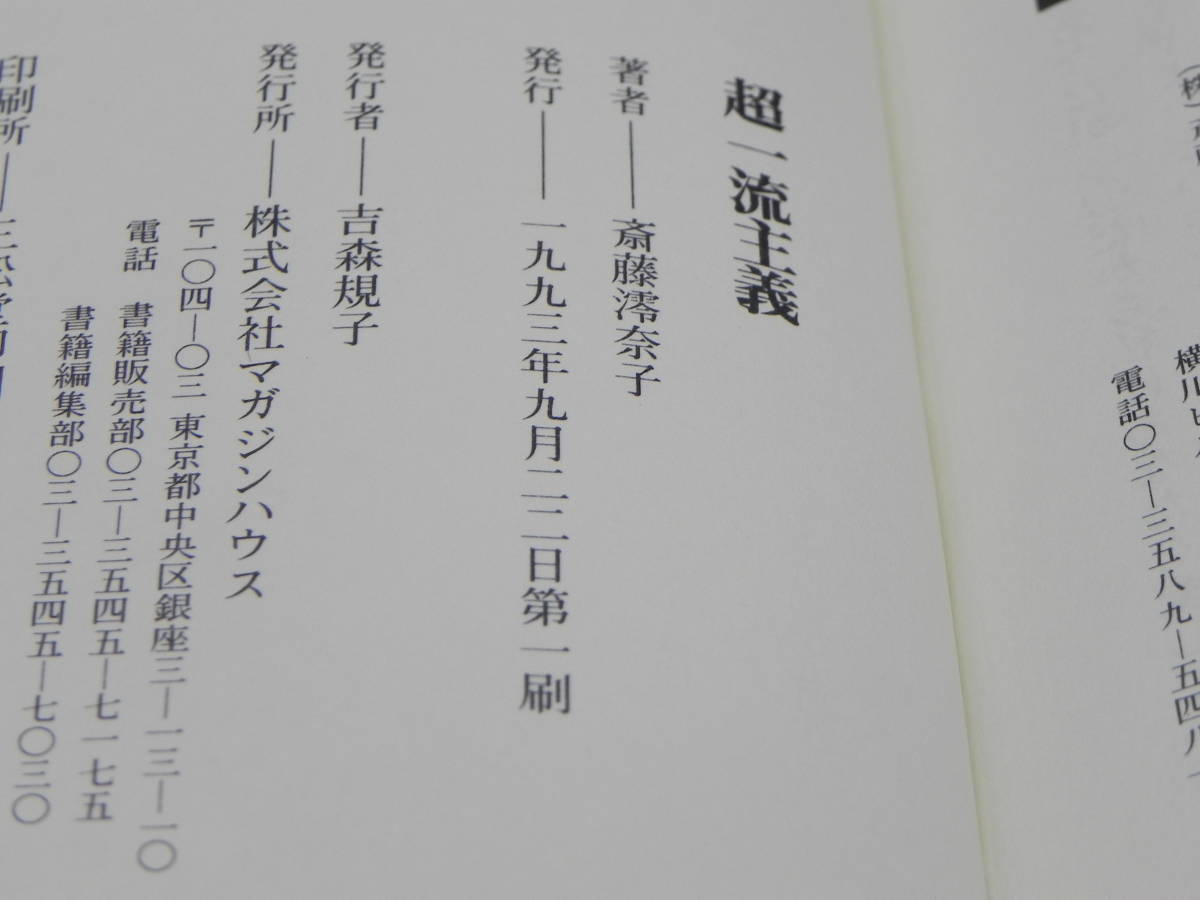 電話〇三―三五八九―五四八
超一流主義
著者――斎藤澪奈子
発行――一九九三年九月二二日第一刷
発行者――吉森規子
発行所――株式会社マガジンハウス
〒一〇四―〇三 東京都中央区銀座三―一三―一〇
電話 書籍販売部〇三―三五四五―七一七五
書籍編集部〇三―三五四五―七〇三〇
印刷所――